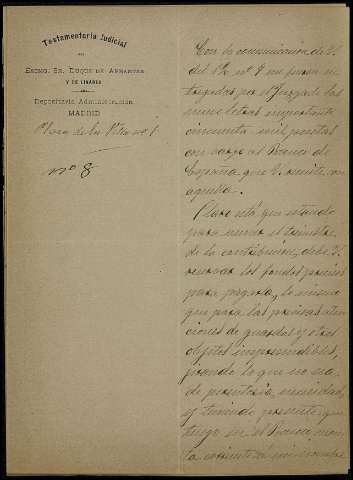 Testamentaría Judicial
DEL
EXCMO. SR. DUQUE DE ABRANTES
Y DE LINARES
Depositaría Administración
MADRID
Plaza de la Villa nº 1
nº 8
Con la comunicación de V.
del 12 nº 7 me fueron en
tregadas por el Juzgado las
nueve letras importante
cincuenta mil pesetas
con cargo al Banco de
España que V. remite con
aquella.
Claro está que estando
para vencer el trimestre
de la contribución, debe V.
reservar los fondos precisos
para pagarla, lo mismo
que para las precisas aten
ciones de guardas y otros
objetos imprescindibles,
girando lo que no sea
de perentoria necesidad,
y teniendo presente que
tengo en el Banco
ta corriente a mi nombre